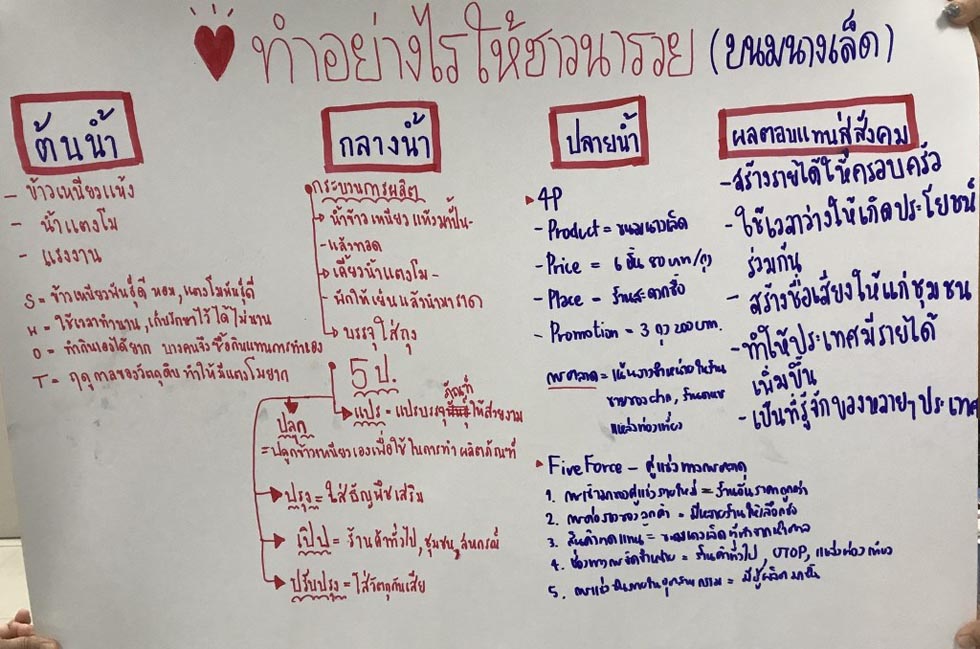 ทำอย่างไรให้ชาวนารวย (ขนมนางเล็ด)
ต้นน้ำ
- ข้าวเหนียวแห้ง
- น้ำแตงโม
- แรงงาน
S = ข้าวเหนียวพันธุ์ดี หอม, แตงโมพันธุ์ดี
W = ใช้เวลาทำนาน, เก็บรักษาไว้ได้ไม่นาน
O = ทำกินเองได้ยาก บางคนจึงซื้อกินแทนการทำเอง
T = ฤดูกาลของวัตถุดิบ ทำให้มีแตงโมยาก
กลางน้ำ
กระบวนการผลิต
นำข้าวเหนียวแห้งมาปั้น -
- แล้วทอด
เคี่ยวน้ำแตงโม -
- พักให้เย็นแล้วนำมาราด
บรรจุใส่ถุง
5 ป.
แปร = แปรบรรจุภัณฑ์ให้สวยงาม
ปลูก
= ปลูกข้าวเหนียวเองเพื่อใช้ในการทำผลิตภัณฑ์
ปรุง = ใส่ธัญพืชเสริม
เปิป = ร้านค้าทั่วไป, ชุมชน, สหกรณ์
ปรับปรุง = ใส่วัตถุกันเสีย
ปลายน้ำ
4P
- Product = ขนมนางเล็ด
- Price = 6 ชิ้น 80 บาท/ถุง
- Place = ร้านสะดวกซื้อ
- Promotion = 3 ถุง 200 บาท.
การตลาด = เน้นวางจำหน่ายในร้าน
ขายของฝาก, ร้าน
แหล่งท่องเที่ยว
Five Force - คู่แข่งทางการตลาด
1. การเข้ามาของคู่แข่งรายใหม่ = ร้านอื่นราคาถูกกว่า
2. การต่อรองของลูกค้า = มีหลายร้านให้เลือกซื้อ
3. สินค้าทดแทน = ขนมนางเล็ดที่ทำจากน้ำตาล
4. ช่องทางการจัดจำหน่าย = ร้านค้าทั่วไป, OTOP, แหล่งท่องเที่ยว
5. การแข่งขันภายในอุตสาหกรรม = มีผู้ผลิตมากขึ้น
ผลตอบแทนสู่สังคม
- สร้างรายได้ให้ครอบครัว
- ใช้เวลาว่างให้เกิดประโยชน์
ร่วมกัน
- สร้างชื่อเสียงให้แก่ชุมชน
- ทำให้ประเทศมีรายได้
เพิ่มขึ้น
- เป็นที่รู้จักของหลายๆ ประเทศ